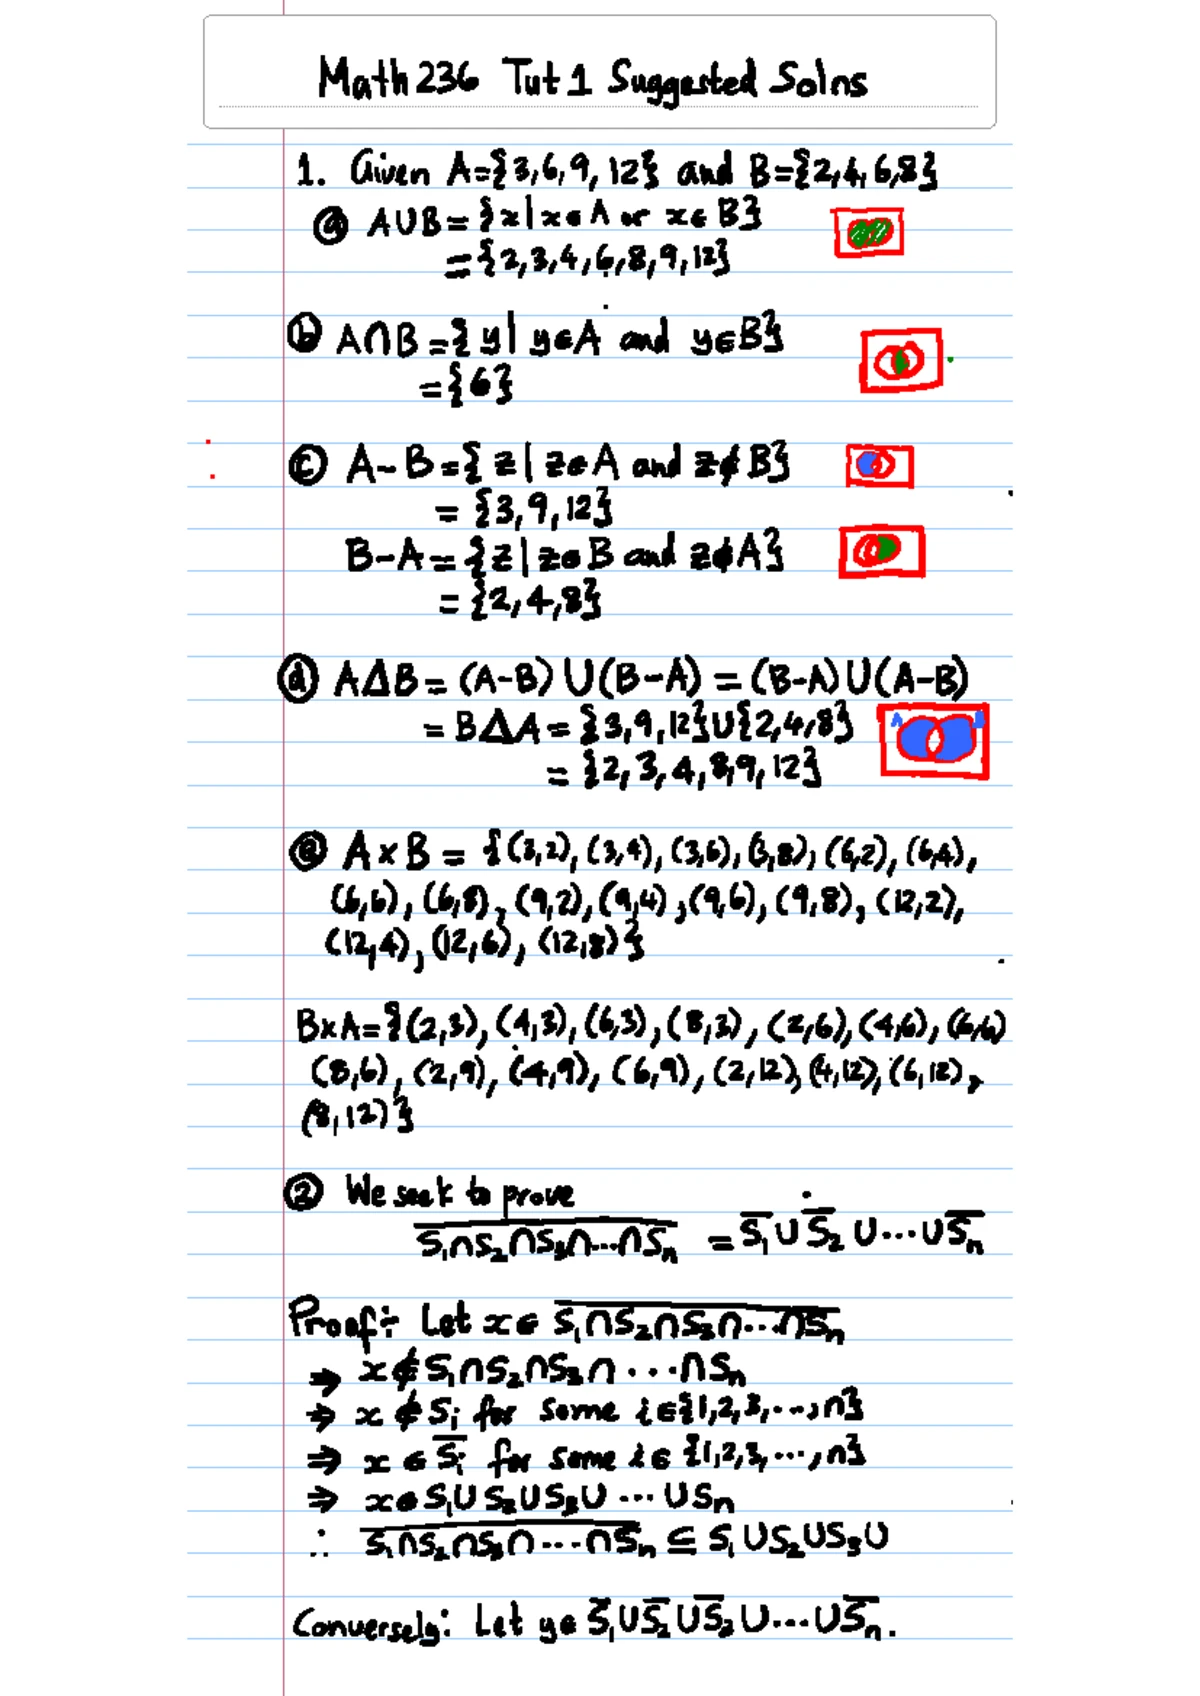 Math 236 Tut 1 Suggested Solns
1. Given A={3,6,9,12} and B={2,4,6,8}
ⓐ A∪B= {x|x∈A or x∈B}
={2,3,4,6,8,9,12}
ⓑ A∩B={y|y∈A and y∈B}
={6}
ⓒ A-B={z|z∈A and z∉B}
= {3,9,12}
B-A={z|z∈B and z∉A}
= {2,4,8}
ⓓ A△B= (A-B)∪(B-A) = (B-A)∪(A-B)
= B△A= {3,9,12}∪{2,4,8}
= {2,3,4,8,9,12}
A
ⓔ A×B = {(3,2), (3,4), (3,6), (3,8), (6,2), (6,4),
(6,6), (6,8), (9,2), (9,4), (9,6), (9,8), (12,2),
(12,4), (12,6), (12,8)}
B×A={(2,3), (4,3), (6,3), (8,3), (2,6), (4,6), (6,6)
(8,6), (2,9), (4,9), (6,9), (2,12), (4,12), (6,12),
(8,12)}
② We seek to prove
S̅₁∩S₂∩S₃∩...∩Sₙ̅ = S̅₁∪S̅₂∪...∪S̅ₙ
Proof:- Let x∈ S̅₁∩S₂∩S₃∩...∩Sₙ̅
⇒ x∉S₁∩S₂∩S₃∩...∩Sₙ
⇒ x∉Sᵢ for some i∈{1,2,3,...,n}
⇒ x∈S̅ᵢ for some i∈{1,2,3,...,n}
⇒ x∈S₁∪S₂∪S₃∪...∪Sₙ
∴ S̅₁∩S₂∩S₃∩...∩Sₙ̅ ⊆ S₁∪S₂∪S₃∪
Conversely: Let y∈ S̅₁∪S̅₂∪S̅₃∪...∪S̅ₙ.